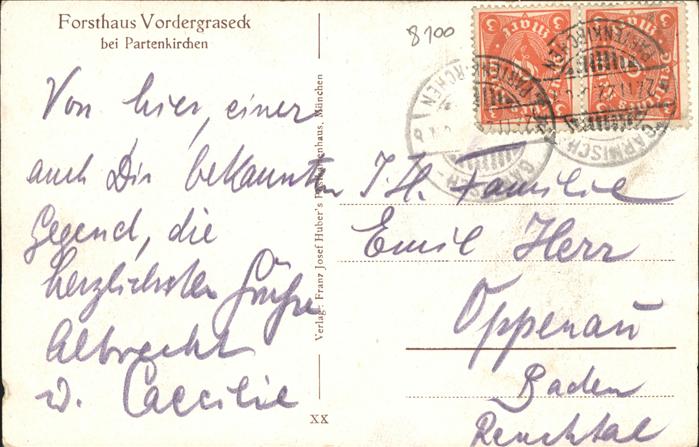 Forsthaus Vordergraseck
bei Partenkirchen
8100
Von hier, einer
auch Dir bekannten
Gegend, die
herzlichsten Grüße
Albrecht
u. Caecilie
XX
Verlag: Franz Josef Huber's Postkartenhaus, München
Familie
Emil Herr
Oppenau
Baden
Renchtal
3 MARK 3
GARMISCH-PARTENKIRCHEN
GARMISCH-PARTENKIRCHEN